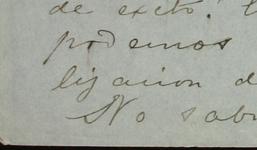 de exito!
podemos
ligacion d
No sab